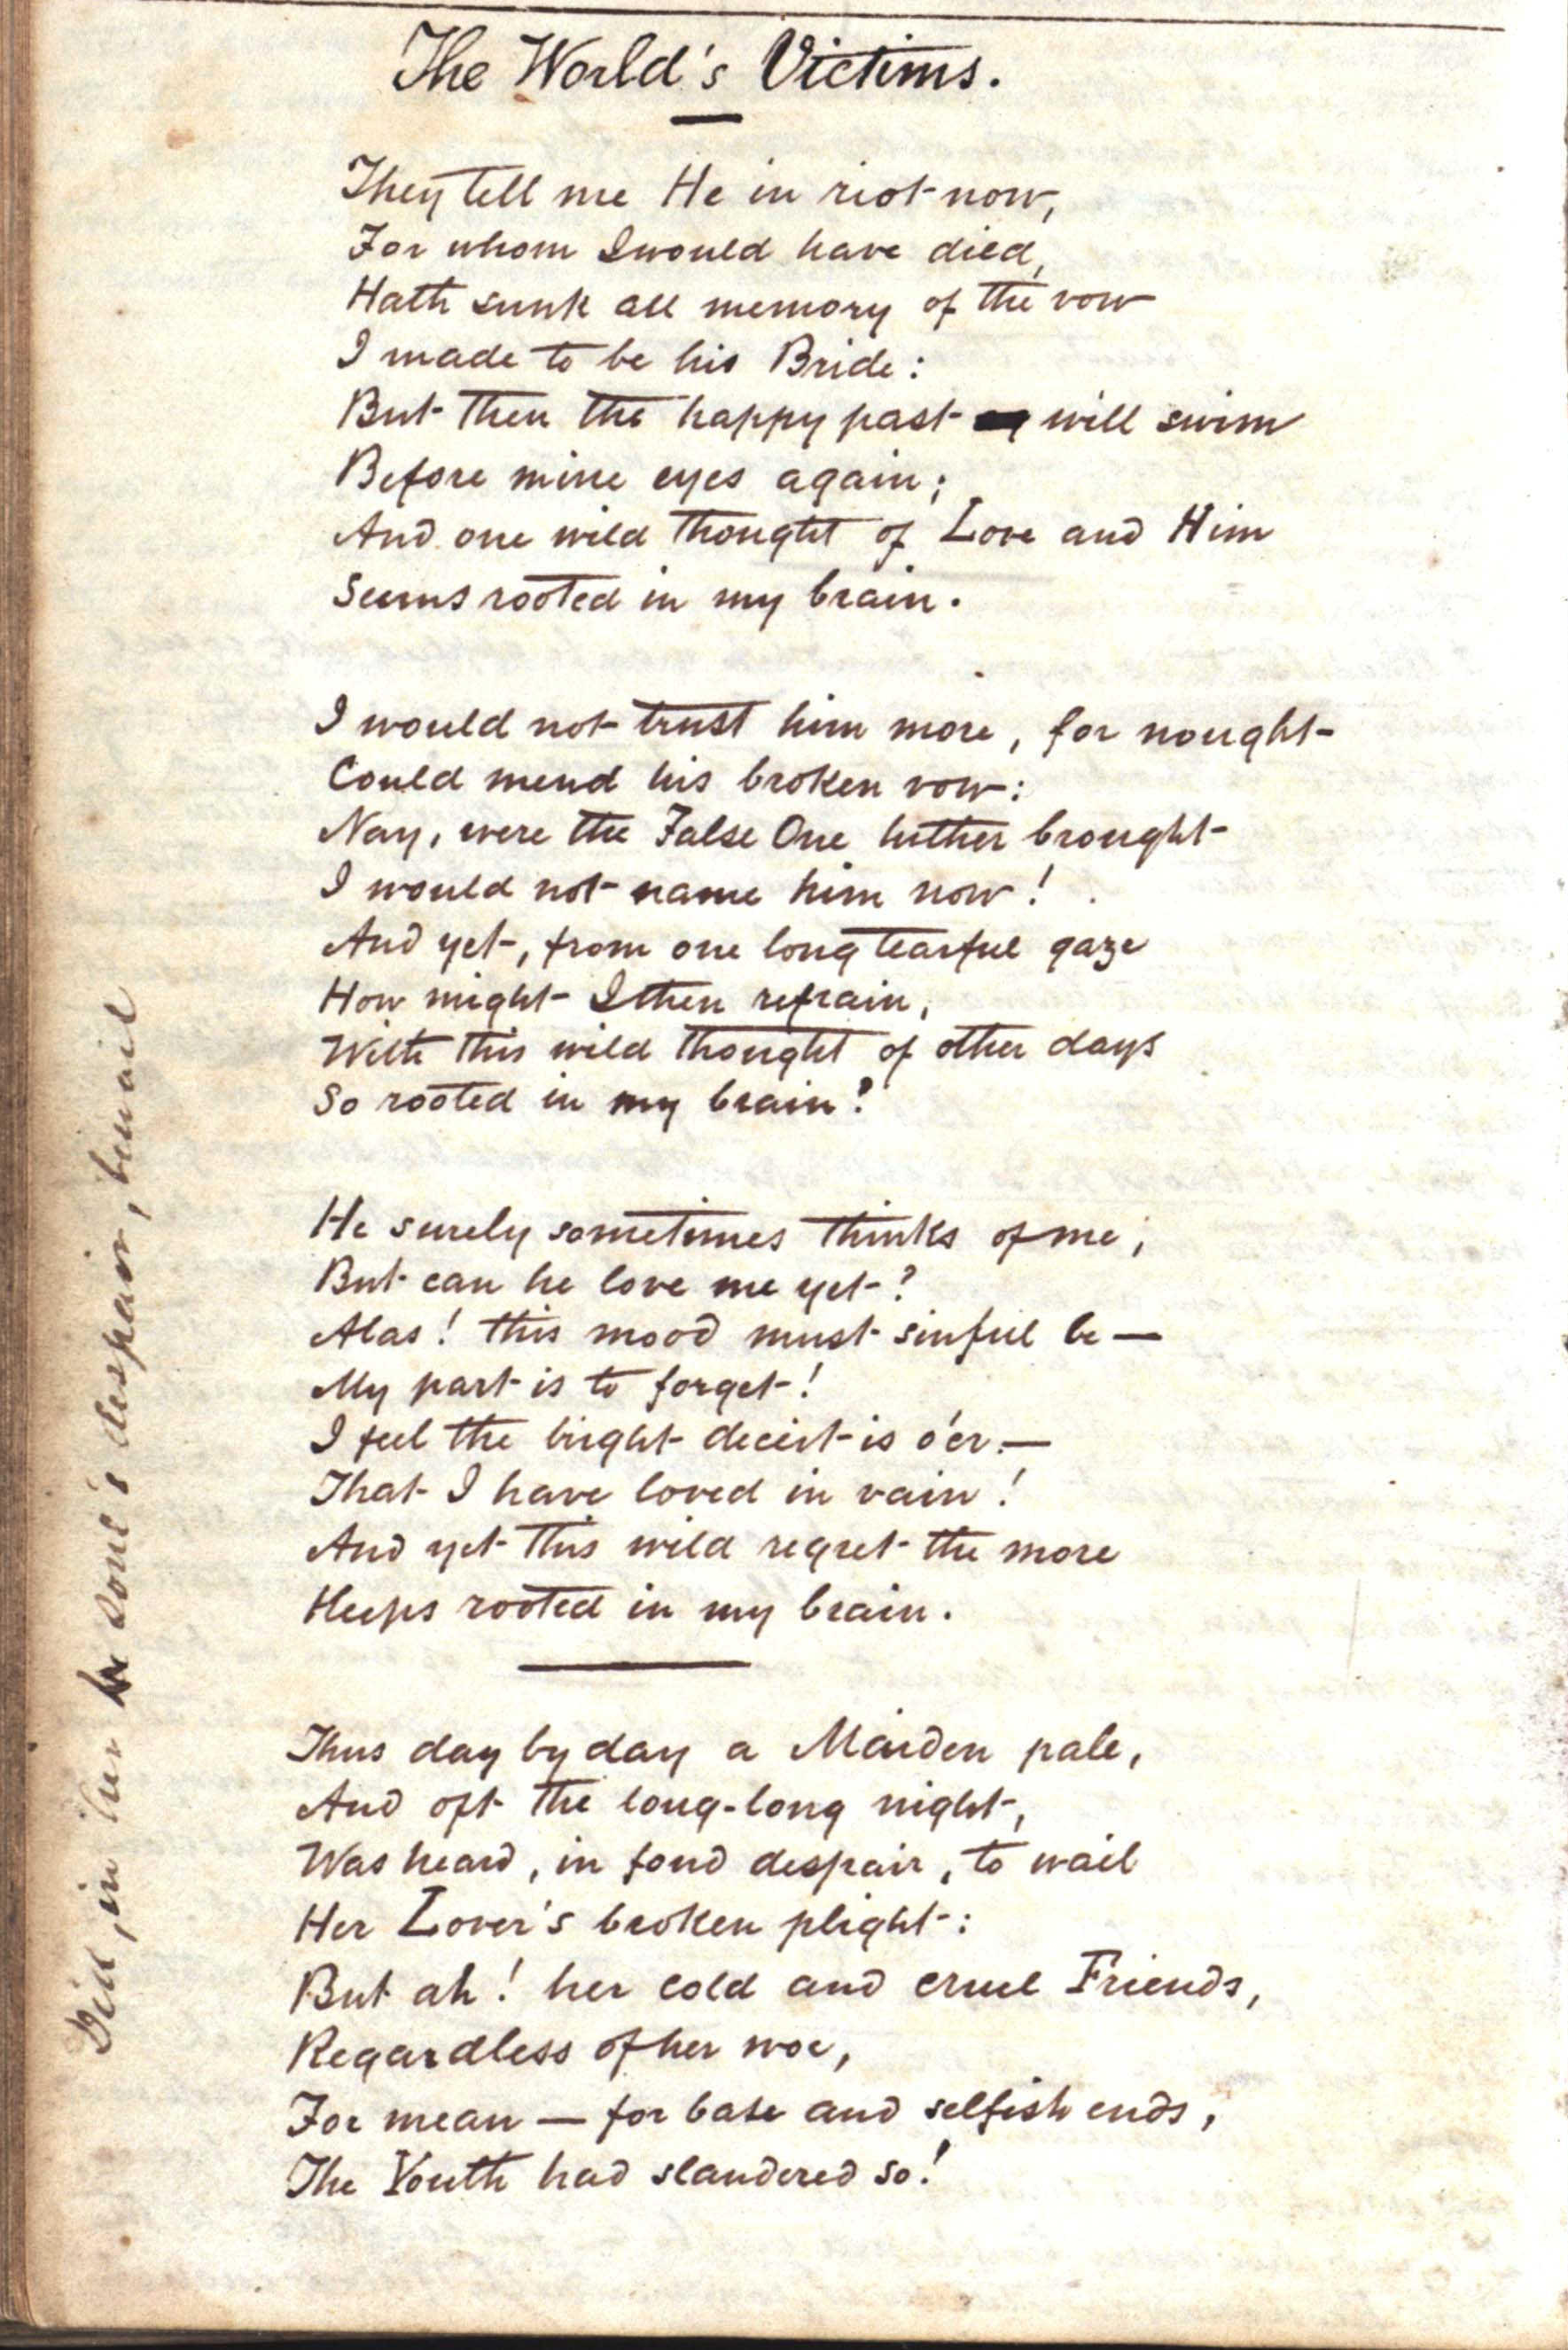 The World's Victims.
They tell me He in riot now,
For whom I would have died,
Hath sunk all memory of the vow
I made to be his Bride:
But then the happy past will swim
Before mine eyes again;
And one wild thought of Love and Him
Seems rooted in my brain.
I would not trust him more, for nought
Could mend his broken vow:
Nay, were the False One hither brought
I would not name him now!
And yet, from one long tearful gaze
How might I then refrain,
With this wild thought of other days
So rooted in my brain?
He surely sometimes thinks of me;
But can he love me yet?
Alas! this mood must sinful be —
My part is to forget!
I feel the bright deceit is o'er —
That I have loved in vain!
And yet this wild regret the more
Keeps rooted in my brain.
Thus day by day a Maiden pale,
And oft the long-long night,
Was heard, in fond despair, to wail
Her Lover's broken plight:
But ah! her cold and cruel Friends,
Regardless of her woe,
For mean — for base and selfish ends,
The Youth had slandered so!
Did, in her soul's despair, bewail